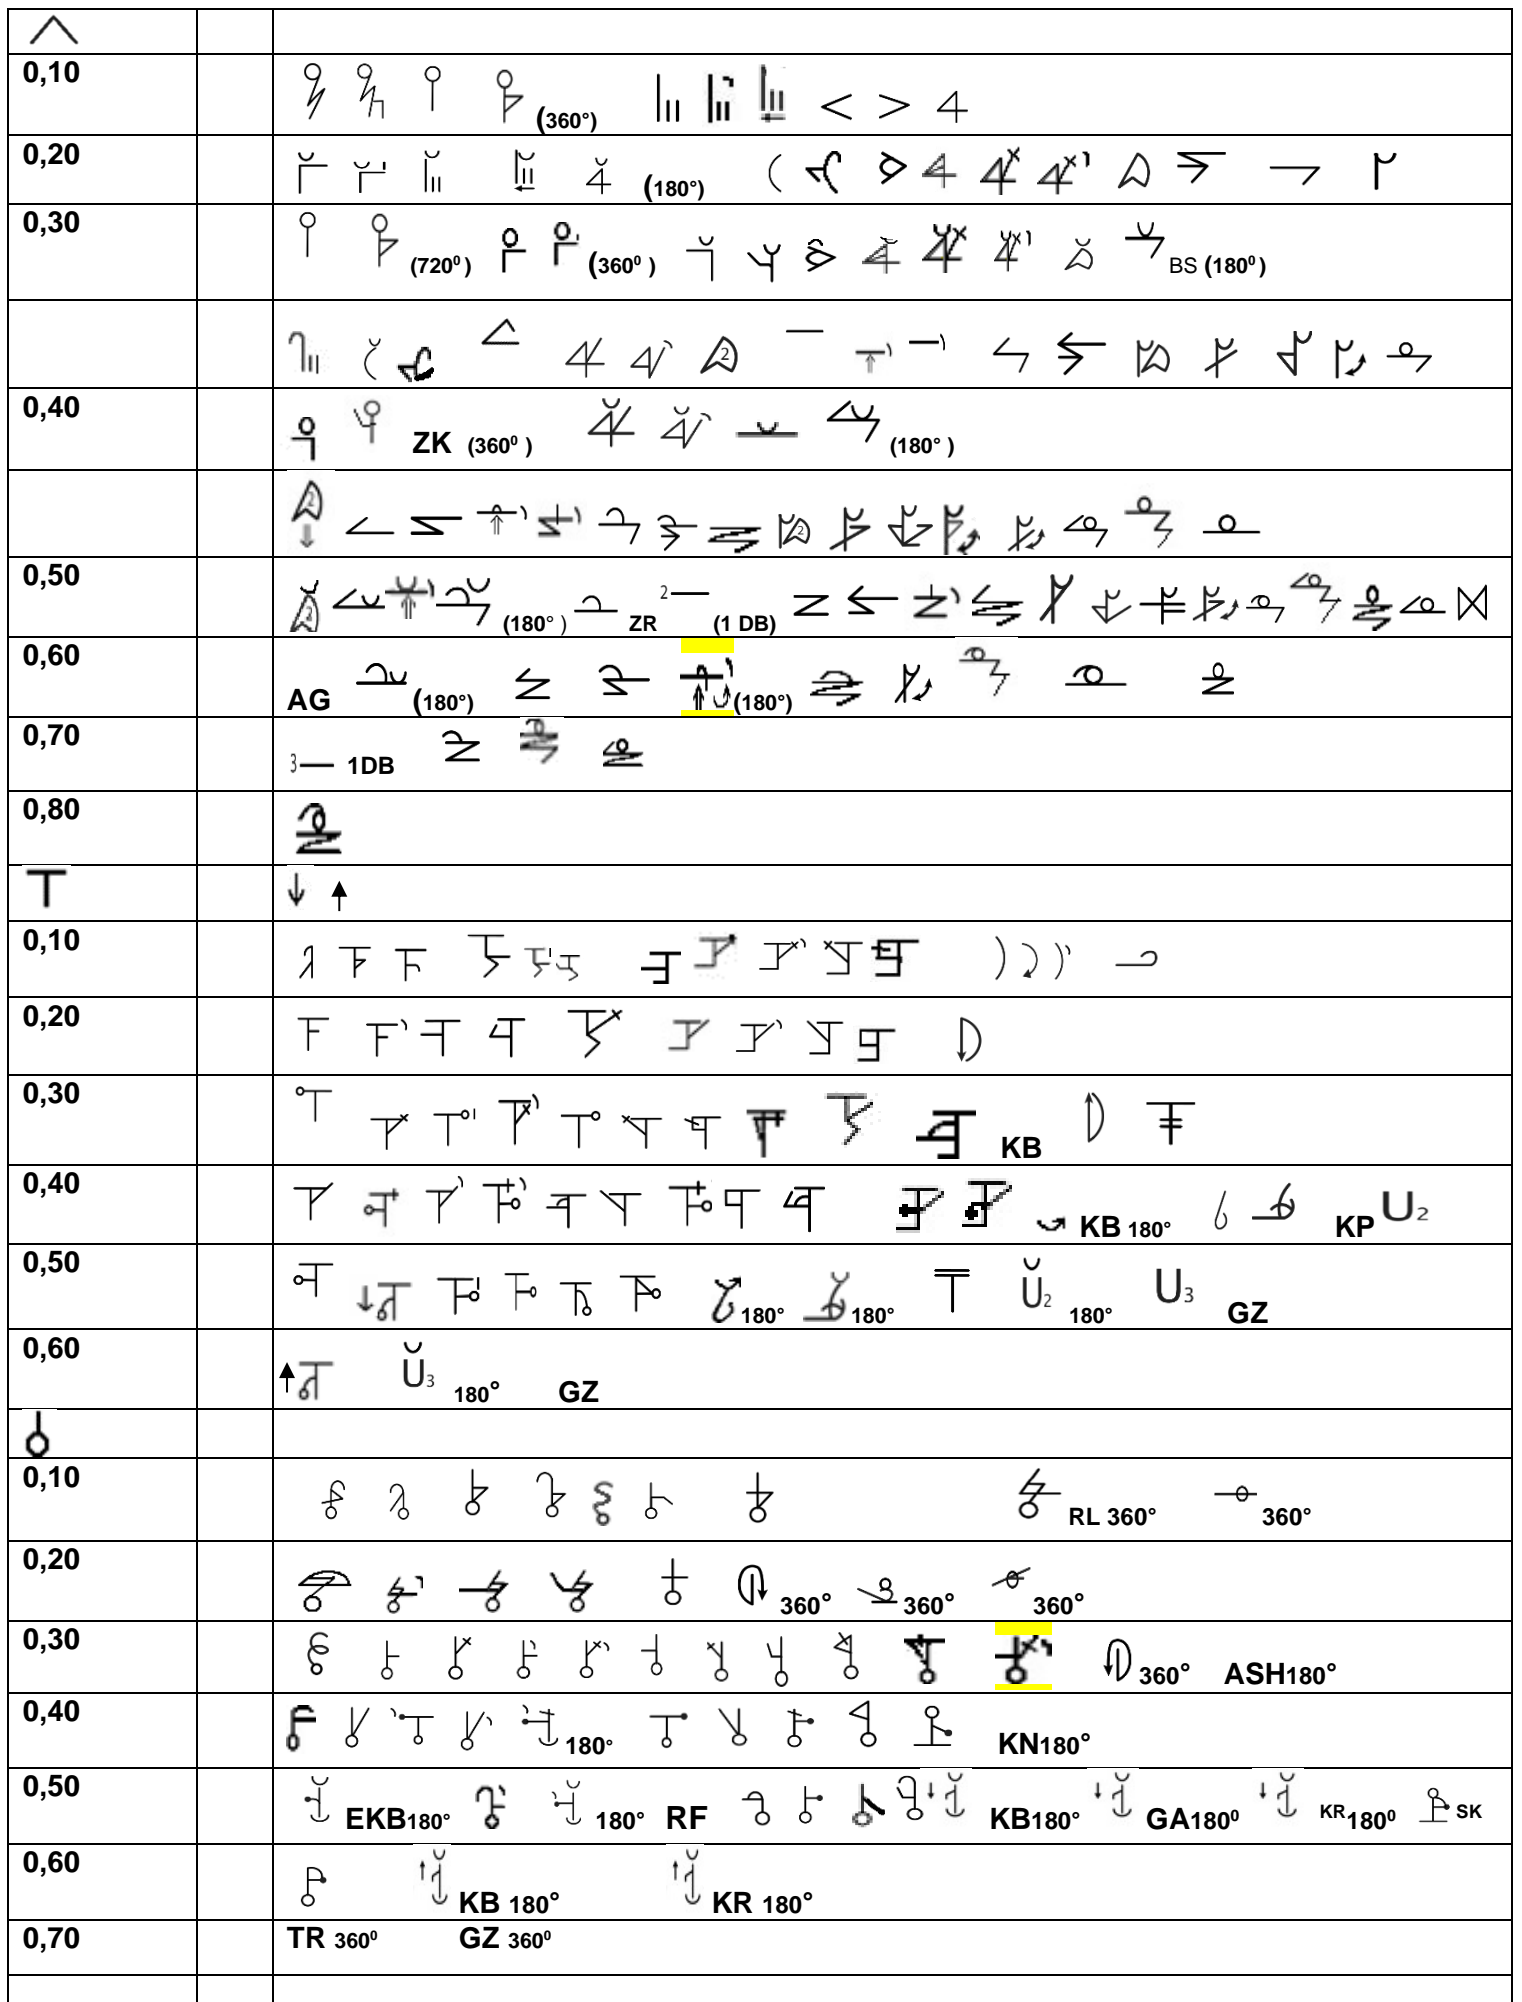 0,10
(360°)
0,20
(180°)
0,30
(720⁰) (360⁰ ) BS (180⁰)
2
0,40
ZK (360⁰ ) (180° )
2 2
0,50
2 (180° ) ZR 2 (1 DB)
0,60
AG (180°) (180°)
0,70
3 1DB
0,80
0,10
0,20
0,30
KB
0,40
KB 180° KP U₂
0,50
180° 180° Ŭ₂ 180° U₃ GZ
0,60
Ŭ₃ 180° GZ
0,10
RL 360° 360°
0,20
360° 360° 360°
0,30
360° ASH180°
0,40
180° KN180°
0,50
EKB180° 180° RF KB180° GA180⁰ KR180⁰ SK
0,60
KB 180° KR 180°
0,70
TR 360⁰ GZ 360⁰